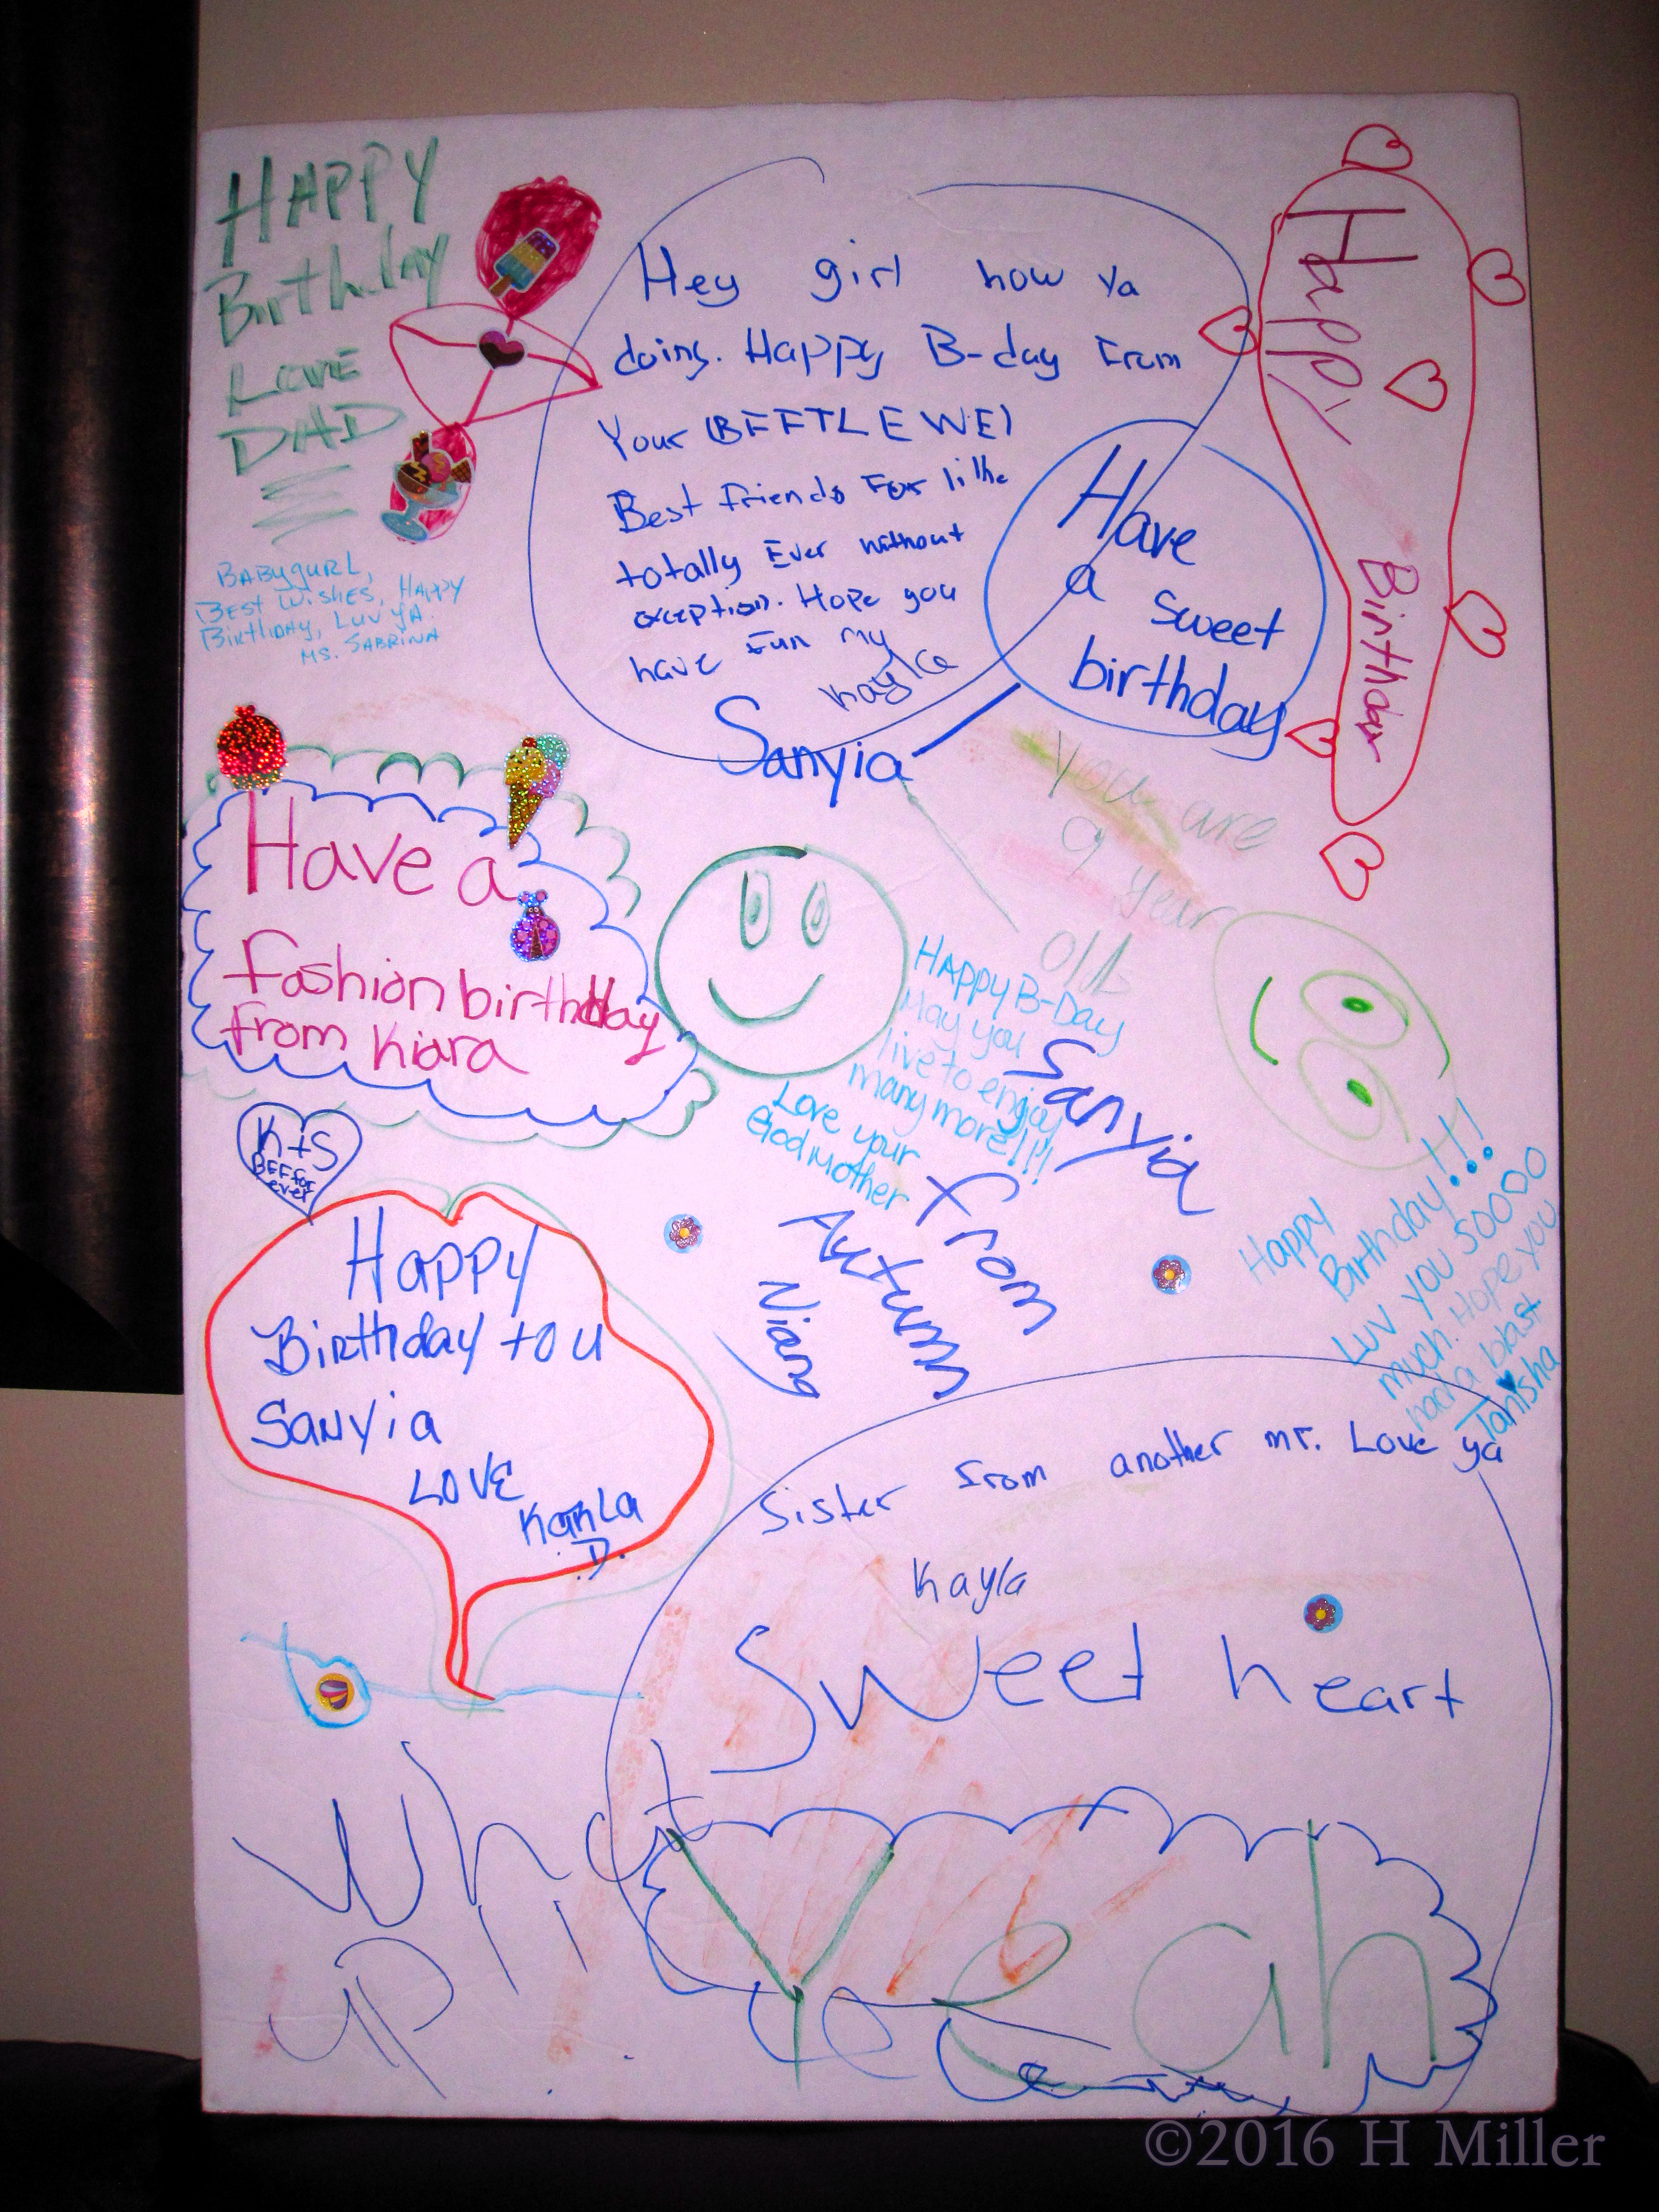 HAPPY
Birthday
LOVE
DAD
BABygURL,
BEST WiSHES, HAPPY
BirthDAY, LUV YA.
MS. SABRINA
Hey girl how ya
doing. Happy B-day From
Your (BFFTLEWE)
Best friends For like
totally Ever without
exception. Hope you
have Fun my
Kayla
Sanyia
Have
a sweet
birthday
Happy
Birthday
You are
9 year
old
Have a
fashion birthday
from Kiara
K+S
BFF for
ever
HAPPY B-Day
May you
live to enjoy
many more!!!
Love your
Godmother
Sanyia
from
Autumn
Niang
Happy
Birthday!!!
Luv you soooo
much. Hope you
have a blast
Tanisha
Happy
Birthday to u
Sanyia
LOVE
Karla
D.
Sister from another mr. Love ya
Kayla
Sweet heart
What
up
Yeah
©2016 H Miller